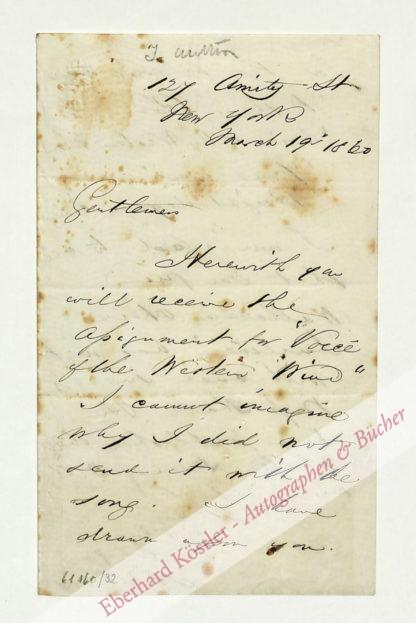 127 Amity St
New York
March 19th 1860
Gentlemen
Herewith you
will receive the
assignment for "Voice
of the Western Wind"
I cannot imagine
why I did not
send it with the
song. I have
drawn upon you.
Eberhard Köstler - Autographen & Bücher